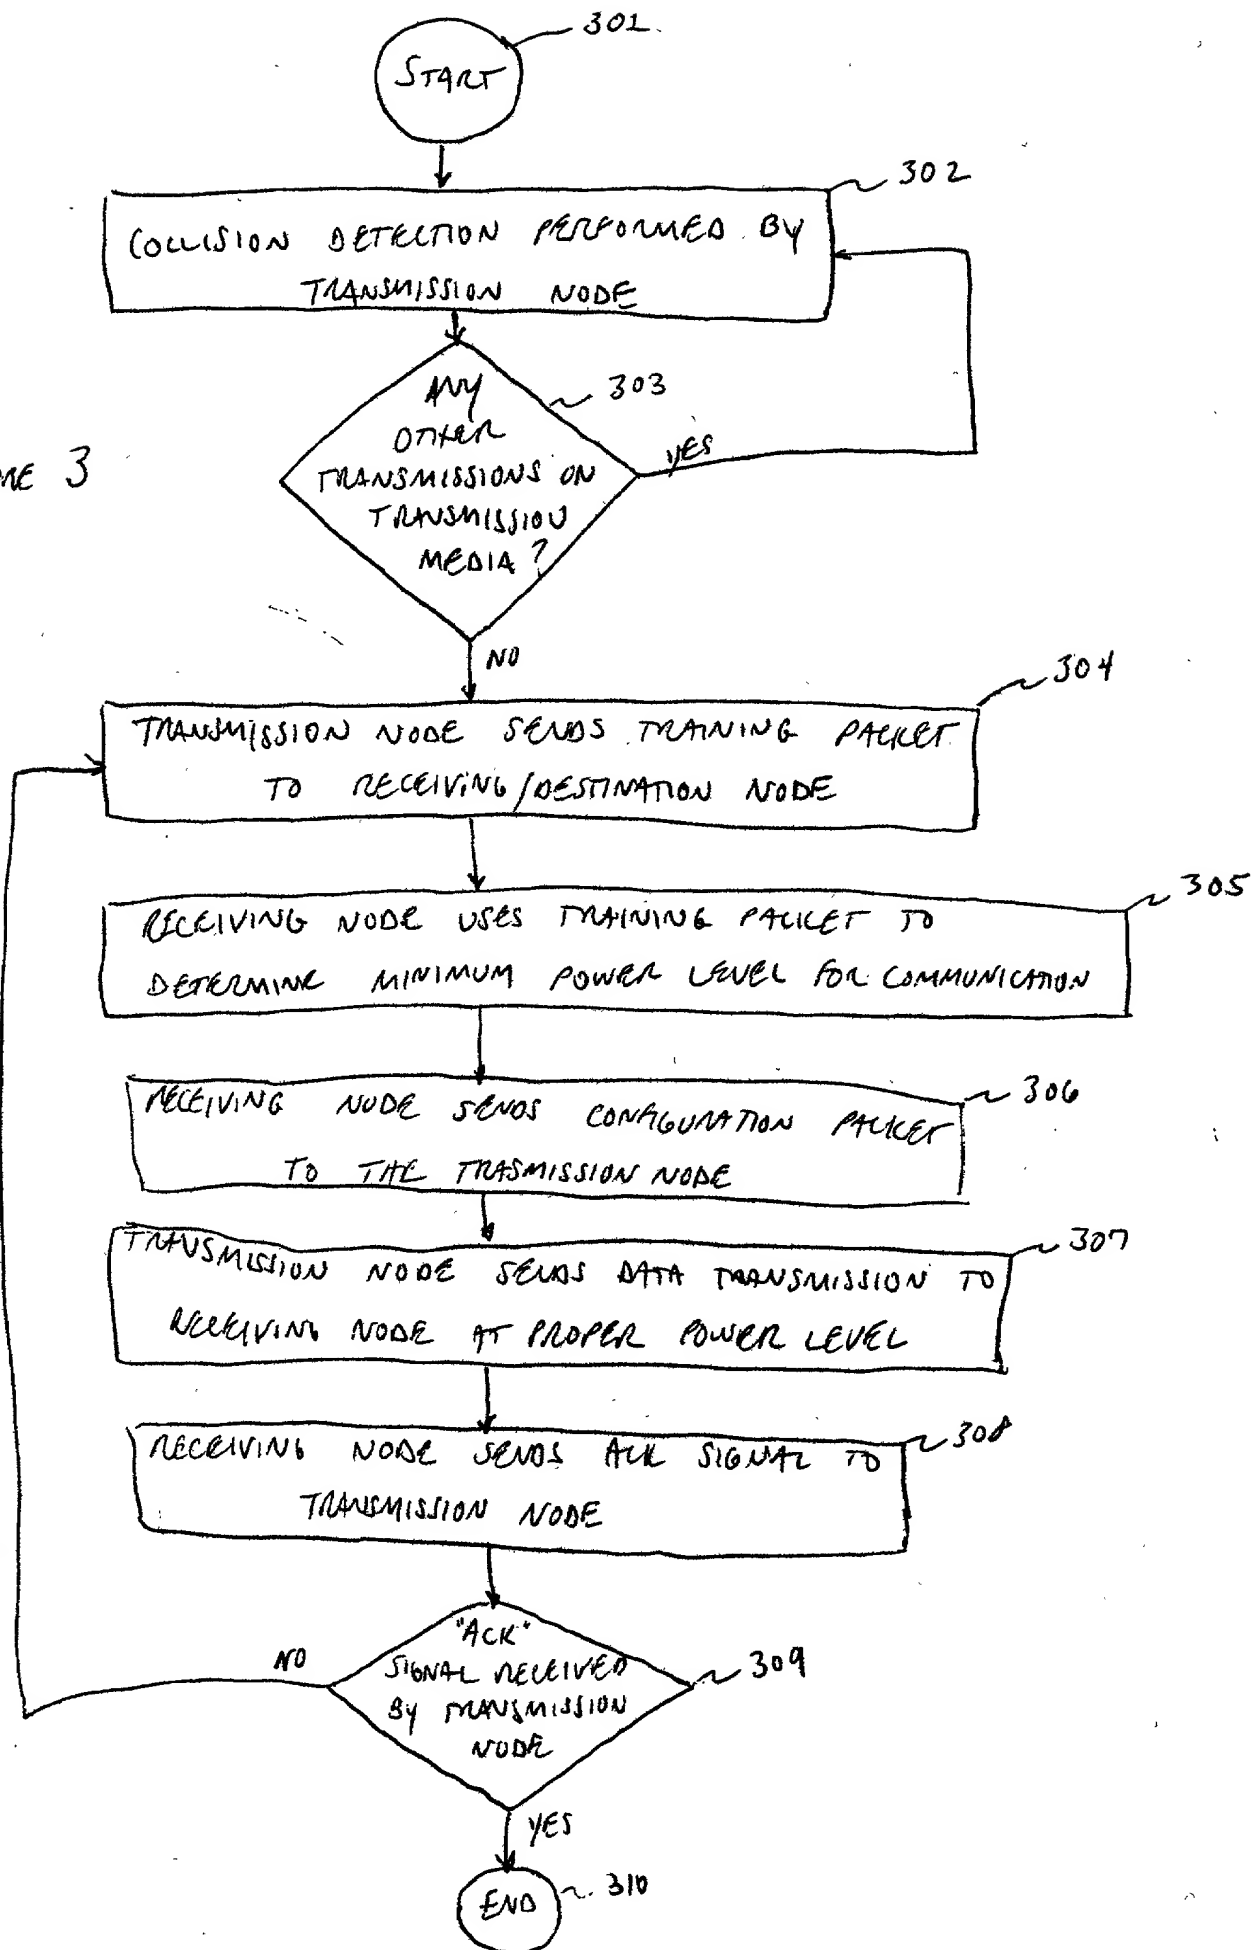 301.
START
302
COLLISION DETECTION PERFORMED BY
TRANSMISSION NODE
303
ANY
OTHER
TRANSMISSIONS ON
TRANSMISSION
MEDIA?
YES
3
NO
304
TRANSMISSION NODE SENDS TRAINING PACKET
TO RECEIVING/DESTINATION NODE
305
RECEIVING NODE USES TRAINING PACKET TO
DETERMINE MINIMUM POWER LEVEL FOR COMMUNICATION
306
RECEIVING NODE SENDS CONFIGURATION PACKET
TO THE TRASMISSION NODE
307
TRANSMISSION NODE SENDS DATA TRANSMISSION TO
RECEIVING NODE AT PROPER POWER LEVEL
308
RECEIVING NODE SENDS ACK SIGNAL TO
TRANSMISSION NODE
"ACK"
SIGNAL RECEIVED
BY TRANSMISSION
NODE
NO
309
YES
END
310